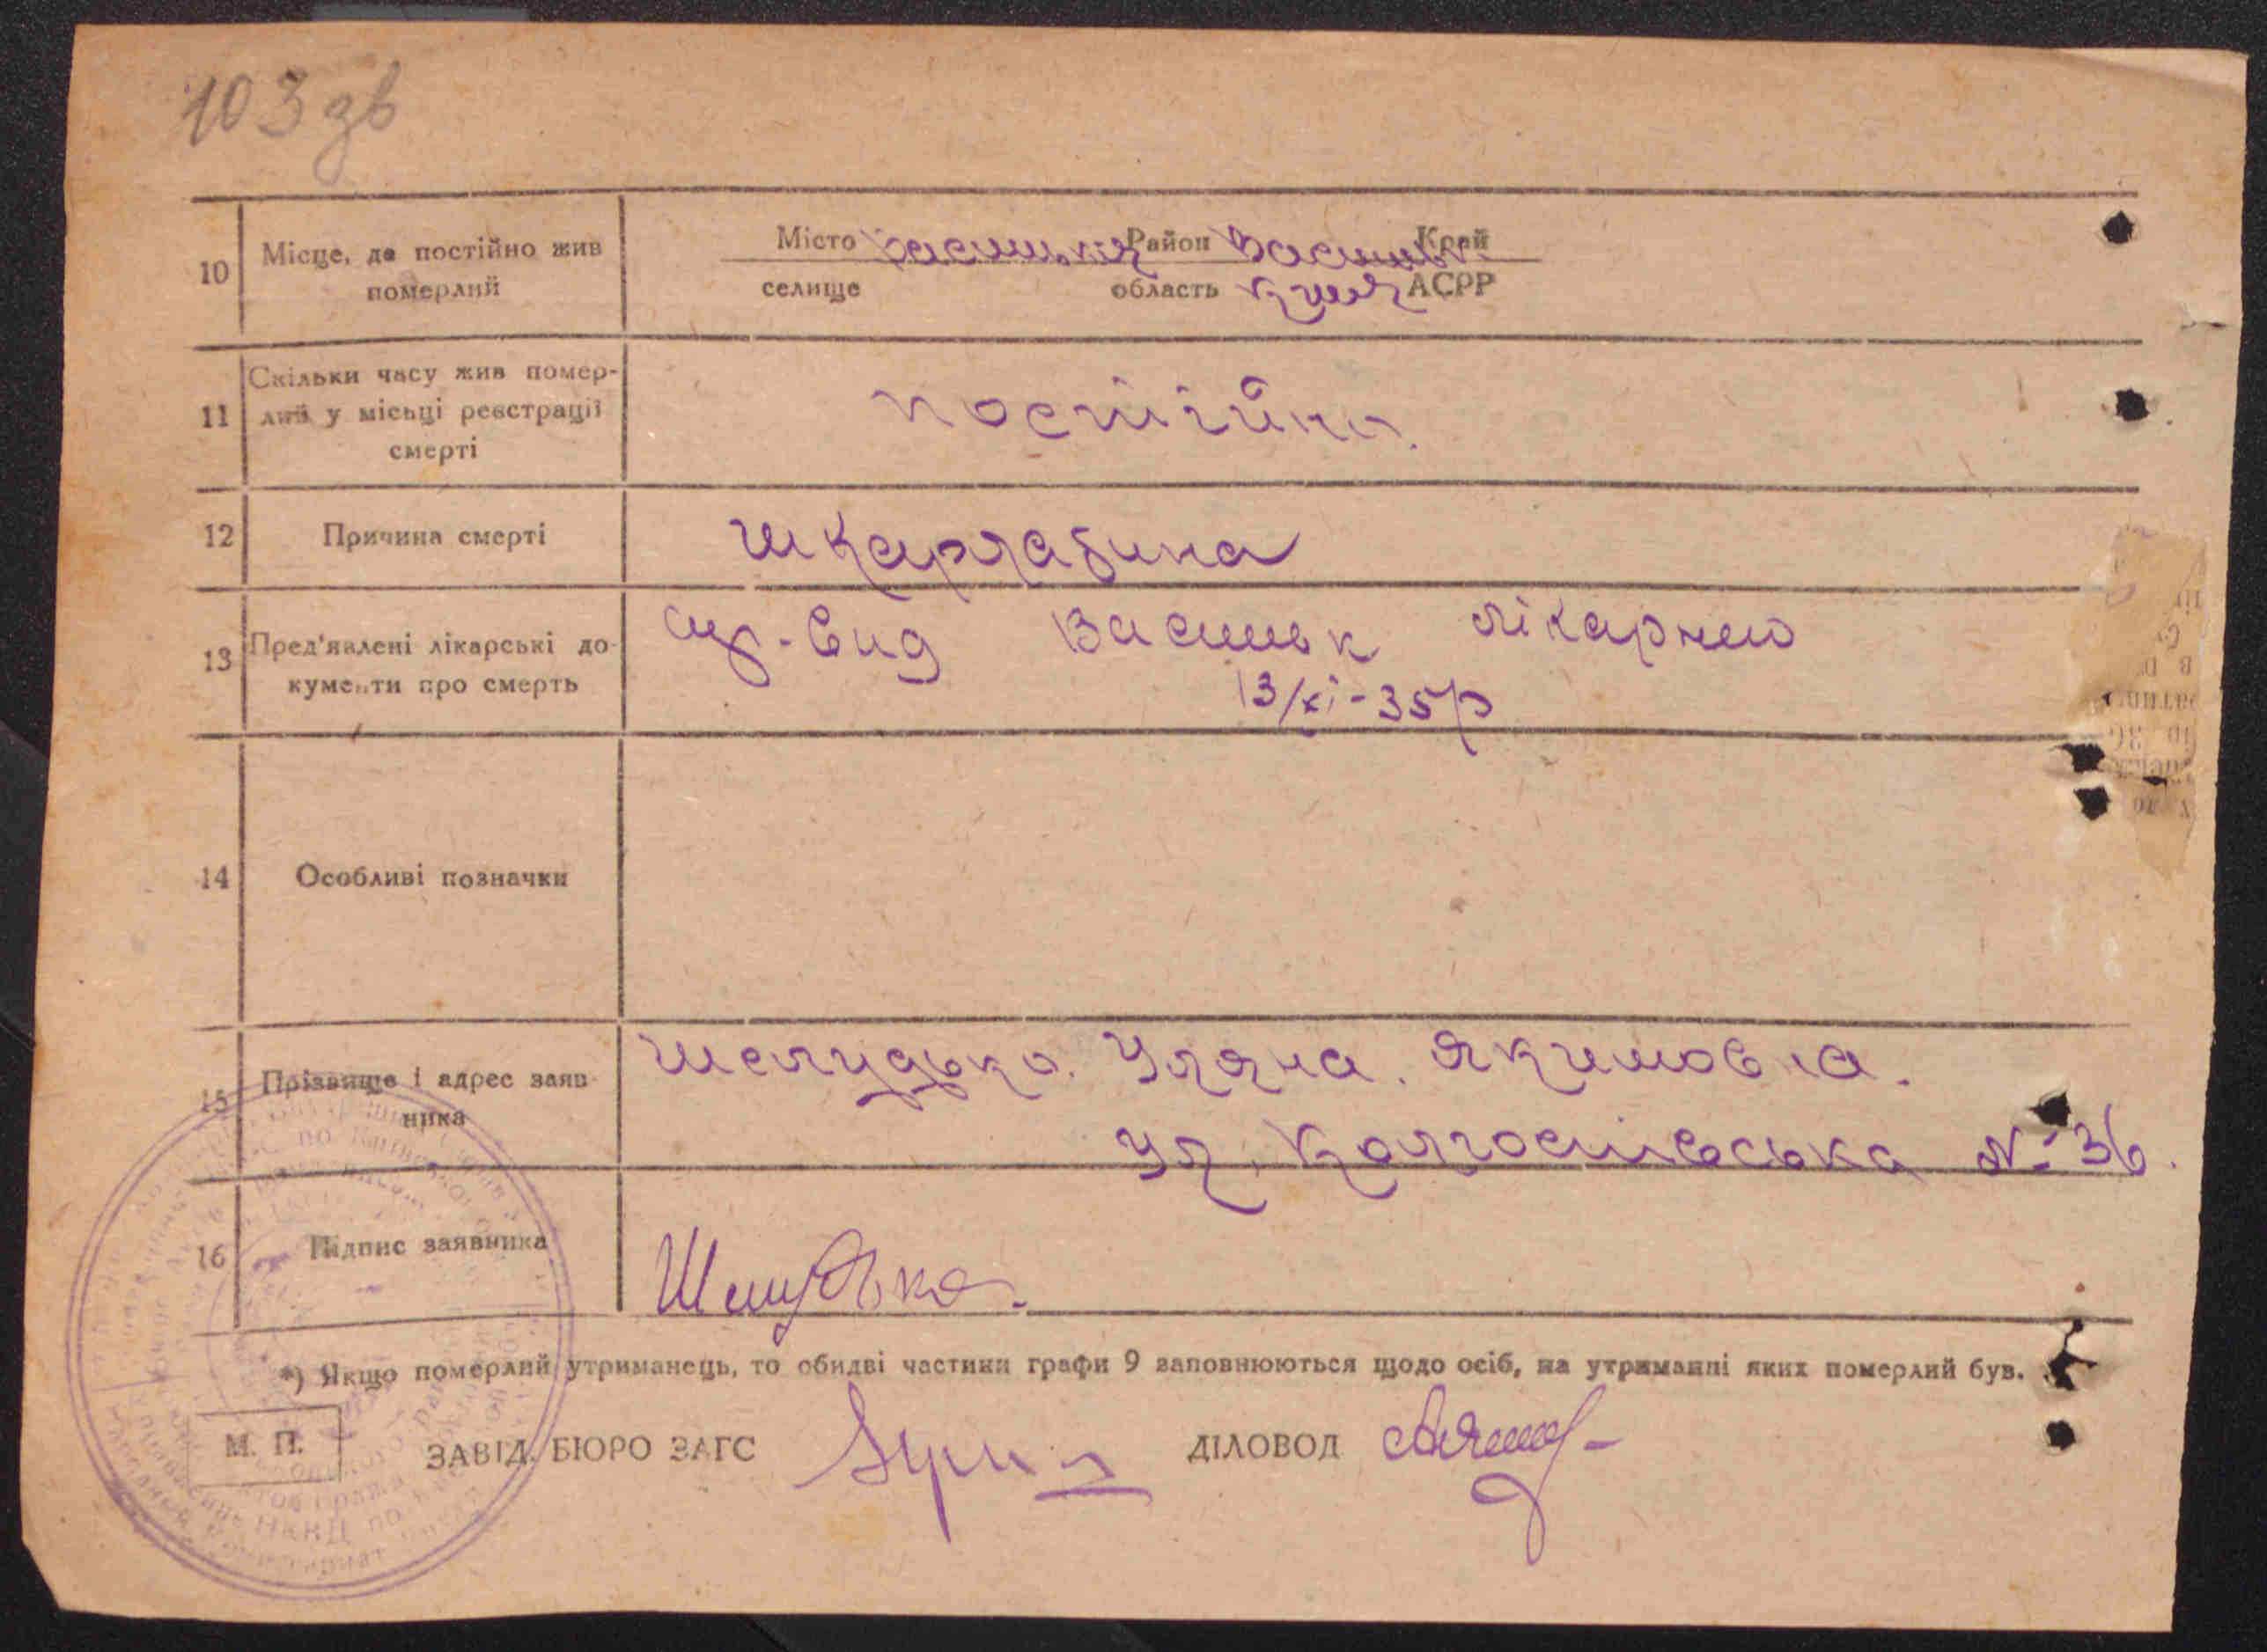 103 зв
10 Місце, де постійно жив померлий
Місто Васильків Район Васильк. Край
селище область Київ АСРР
11 Скільки часу жив помер-
лий у місьці реєстрації
смерті
постійно.
12 Причина смерті
шкарлатина
13 Пред'явлені лікарські до-
кументи про смерть
вид Васильк лікарнею
13/хі-35р
14 Особливі позначки
15 Прізвище і адрес заяв-
ника
Шелудько. Уляна. Якимовна.
Ул. Колгоспівська № 36.
16 Підпис заявника
Шелудько.
*) Якщо померлий утриманець, то обидві частини графи 9 заповнюються щодо осіб, на утриманні яких померлий був.
М. П.
ЗАВІД. БЮРО ЗАГС ДІЛОВОД